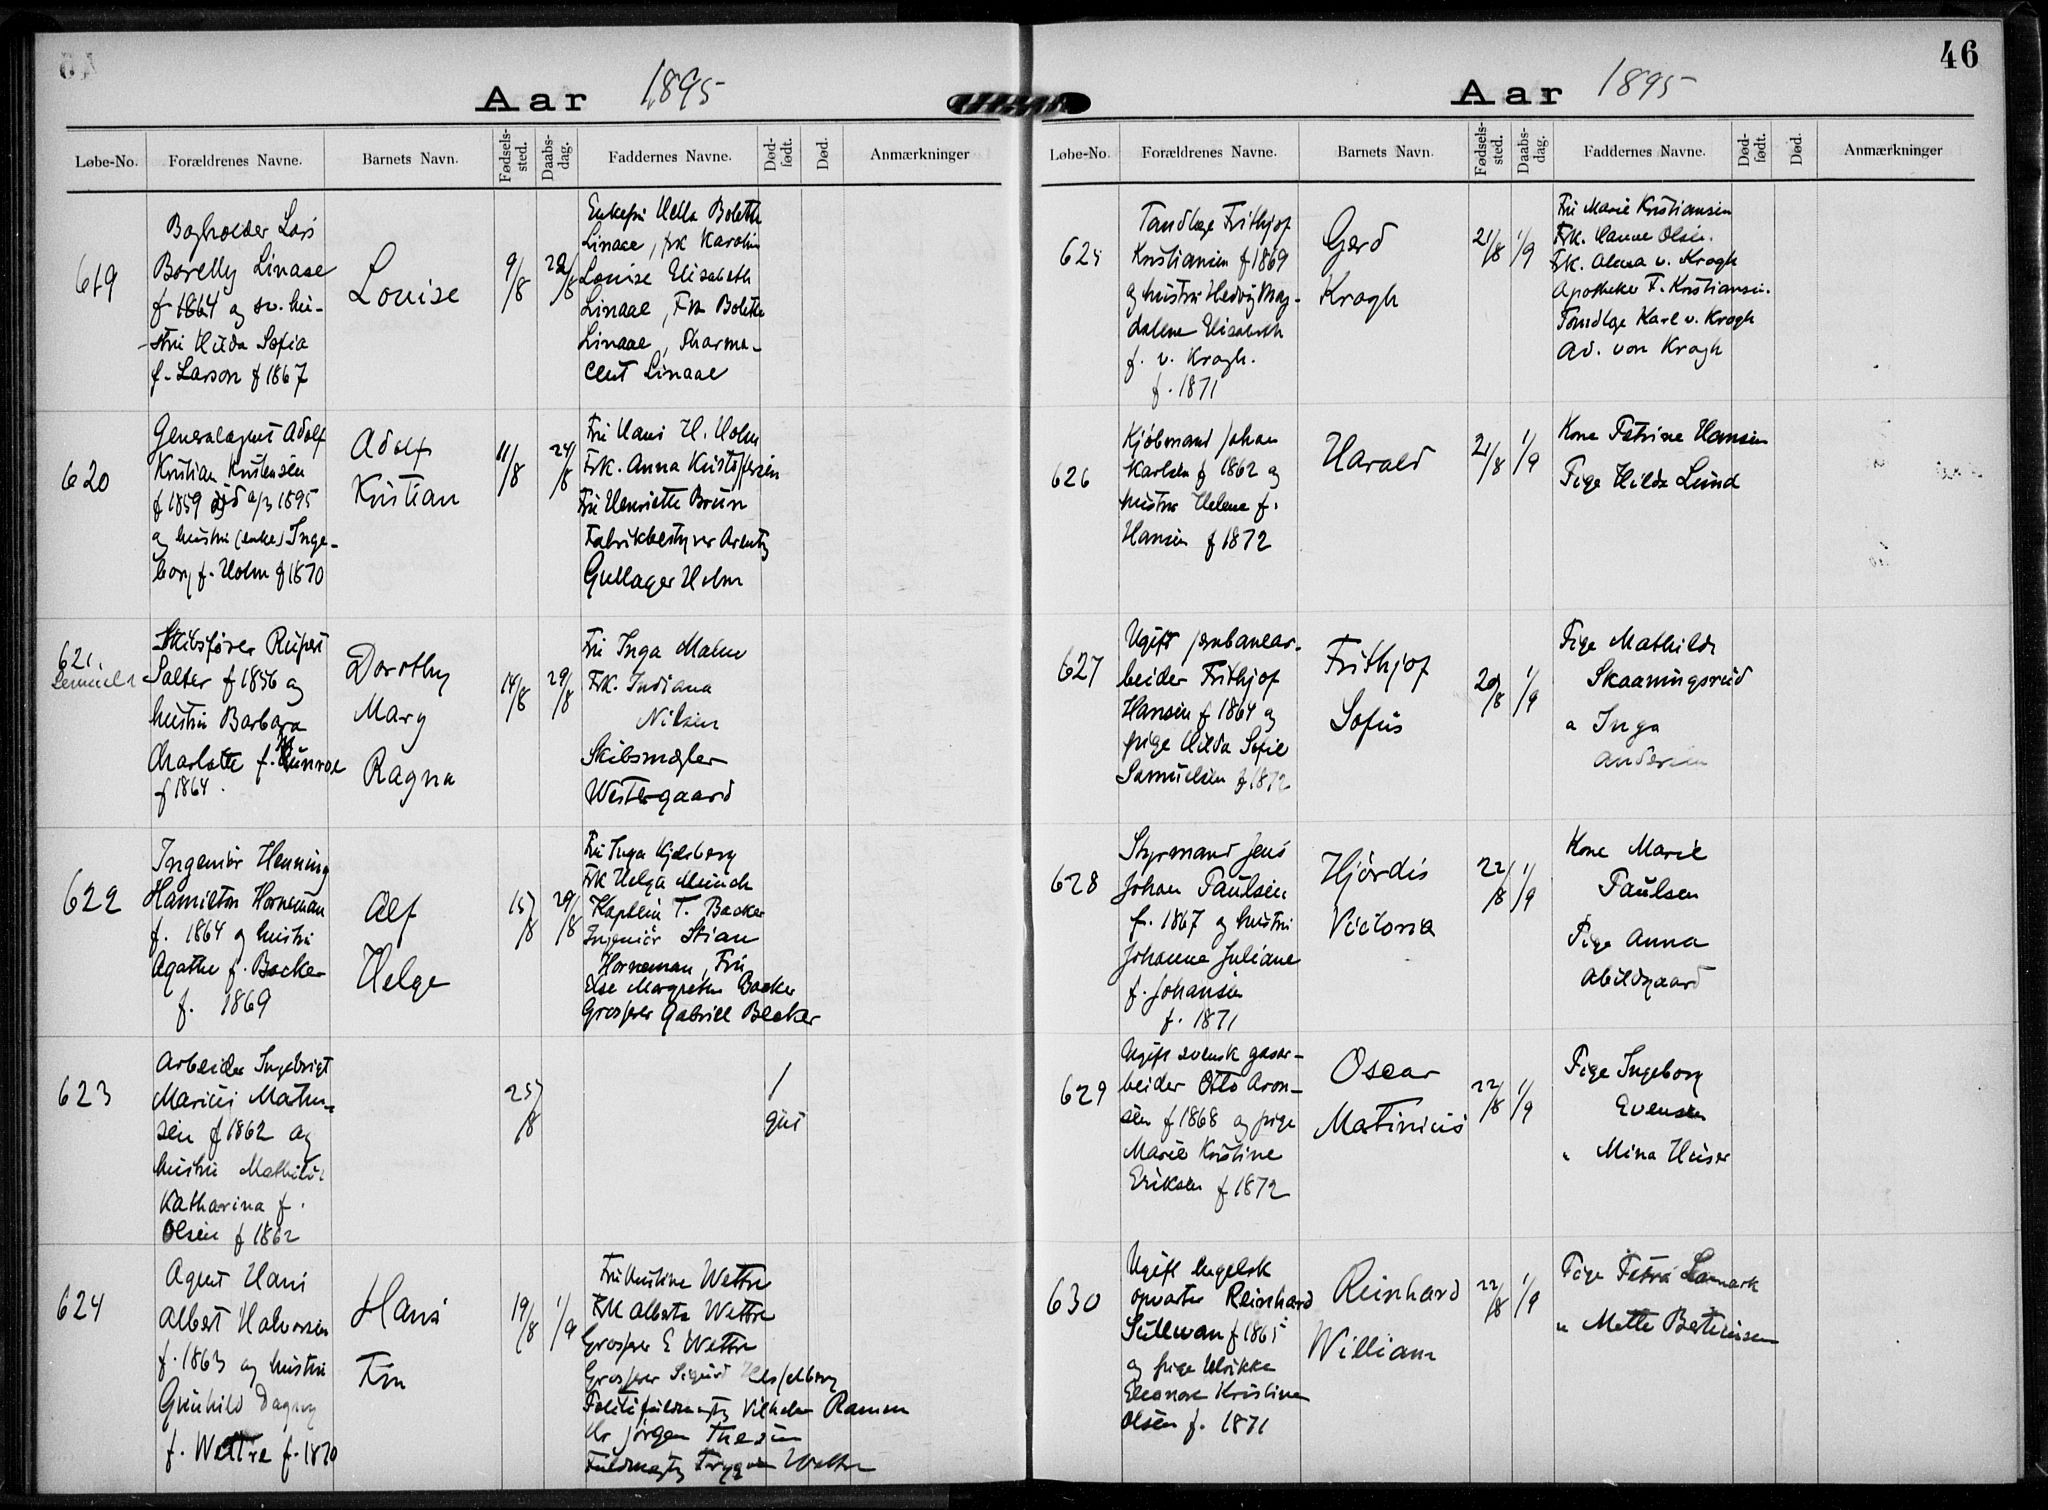 Aar 1895
Løbe-No. Forældrenes Navne. Barnets Navn. Fødsels-sted. Daabs-dag. Faddernes Navne. Død-født. Død. Anmærkninger
619
Bogholder Lars
Borelly Linaae
f 1864 og sv. hu-
stru Hilda Sofia
f. Larson f 1867
Louise
9/8
22/8
Enkefru Hella Boleth
Linaae, frk Karolin
Louise Elisabeth
Linaae, Frk Bolethe
Linaae, Pharma-
ceut Linaae
620
Generalagent Adolf
Kristian Kristensen
f 1859 død 1895
og hustru (enke) Inge-
borg f. Holm f 1870
Adolf
Kristian
11/8
24/8
Fru Hansi H. Holm
Frk. Anna Kristoffersen
Fru Henriette Brun
Fabrikbestyrer Arentz
Gullager Holm
621.
Skibsfører Rupert
Salter f 1856 og
hustru Barbara
Charlotte f. Munroe
f 1864.
Dorothy
Mary
Ragna
14/8
29/8
Fru Inga Malm
Frk. Indiana
Nilsen
Skibsmægler
Westergaard
622
Ingeniør Henning
Hamilton Horneman
f. 1864 og hustru
Agathe f. Backer
f. 1869
Alf
Helge
15/8
29/8
Fru Inga Kjelsberg
Frk Helga Munch
Kaptein T. Backer
Ingeniør Stian
Horneman, Fru
Else Margrethe Backer
Grosserer Gabriel Backer
623
Arbeider Ingebrigt
Marius Mathi-
sen f 1862 og
hustru Mathilde
Katharina f.
Olsen f 1862
25/8
1
gut
624
Agent Hans
Albert Halvorsen
f. 1863 og hustru
Gunhild Dagny
f. Wettre f. 1870
Hans
Finn
19/8
1/9
Fru Kristine Wettre
Frk Alberta Wettre
Grosserer E Wettre
Grosserer Sigurd Hesselberg
Politifuldmægtig Vilhelm Ramm
Hr Jørgen Thesen
Fuldmægtig Trygve Wettre
46
Aar 1895
Løbe-No. Forældrenes Navne. Barnets Navn. Fødsels-sted. Daabs-dag. Faddernes Navne. Død-født. Død. Anmærkninger
625
Tandlæge Frithjof
Kristiansen f 1869
og hustru Hedvig Mag-
dalene Elisabeth
f. v. Krogh.
f. 1871
Gerd
Krogh
21/8
1/9
Fru Marie Kristiansen
Frk. Hanne Olsen.
Frk. Alma v. Krogh
Apotheker F. Kristiansen.
Tandlæge Karl v. Krogh
Ad. von Krogh
626
Kjøbmand Johan
Karlsen f 1862 og
hustru Helene f.
Hansen f 1872
Harald
21/8
1/9
Kone Petrine Hansen
Pige Hilda Lund
627
Ugift jernbanear-
beider Frithjof
Hansen f 1864 og
pige Hilda Sofie
Samuelsen f 1872
Frithjof
Sofus
20/8
1/9
Pige Mathilde
Skaaningsrud
" Inga
Andersen
628
Styrmand Jens
Johan Paulsen
f. 1867 og hustru
Johanne Juliane
f. Johansen
f. 1871
Hjørdis
Victoria
22/8
1/9
Kone Marie
Paulsen
Pige Anna
Abildgaard
629
Ugift svensk gasar-
beider Otto Aron-
sen f 1868 og pige
Marie Kristine
Eriksen f 1872
Oscar
Matinius
22/8
1/9
Pige Ingeborg
Evensen
" Mina Huser
630
Ugift engelsk
opvarter Reinhard
Sullivan f 1865
og pige Ulrikke
Eleonore Kristine
Olsen f. 1871
Reinhard
William
22/8
1/9
Pige Petra Lamark
" Mette Bertinusen